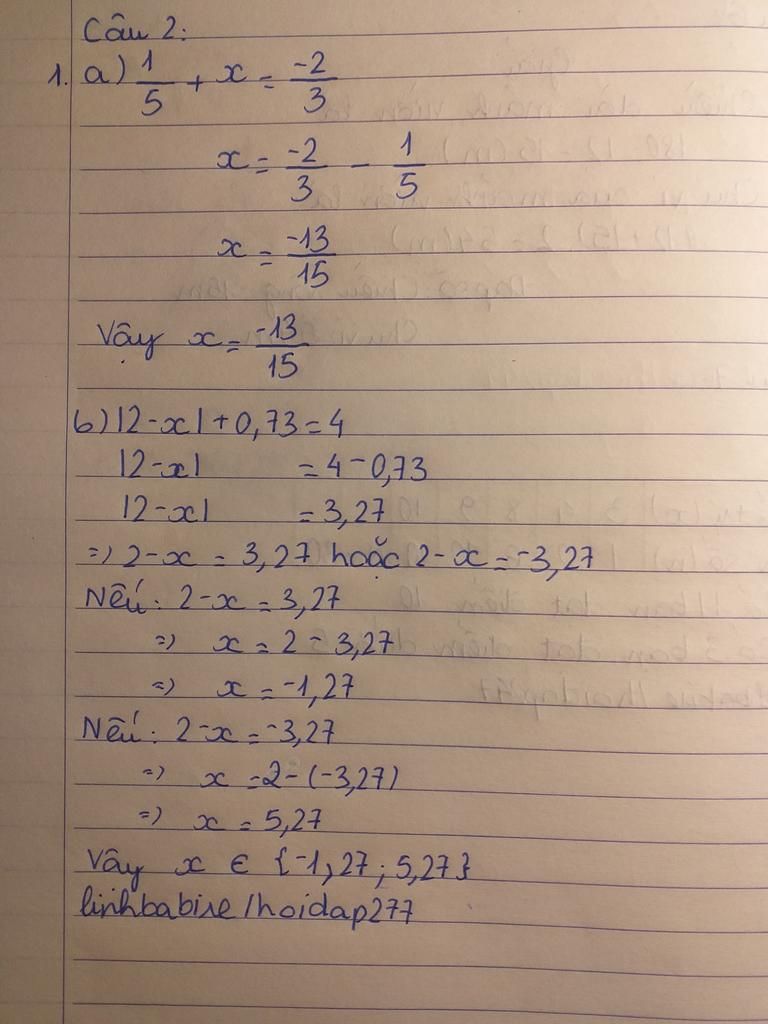 Câu 2:
1. a) 1/5 + x = -2/3
x = -2/3 - 1/5
x = -13/15
Vậy x = -13/15
b) |2-x| + 0,73 = 4
|2-x| = 4-0,73
|2-x| = 3,27
=> 2-x = 3,27 hoặc 2-x = -3,27
Nếu: 2-x = 3,27
=> x = 2-3,27
=> x = -1,27
Nếu: 2-x = -3,27
=> x = 2-(-3,27)
=> x = 5,27
Vây x ∈ {-1,27; 5,27}
linhbabise/hoidap277